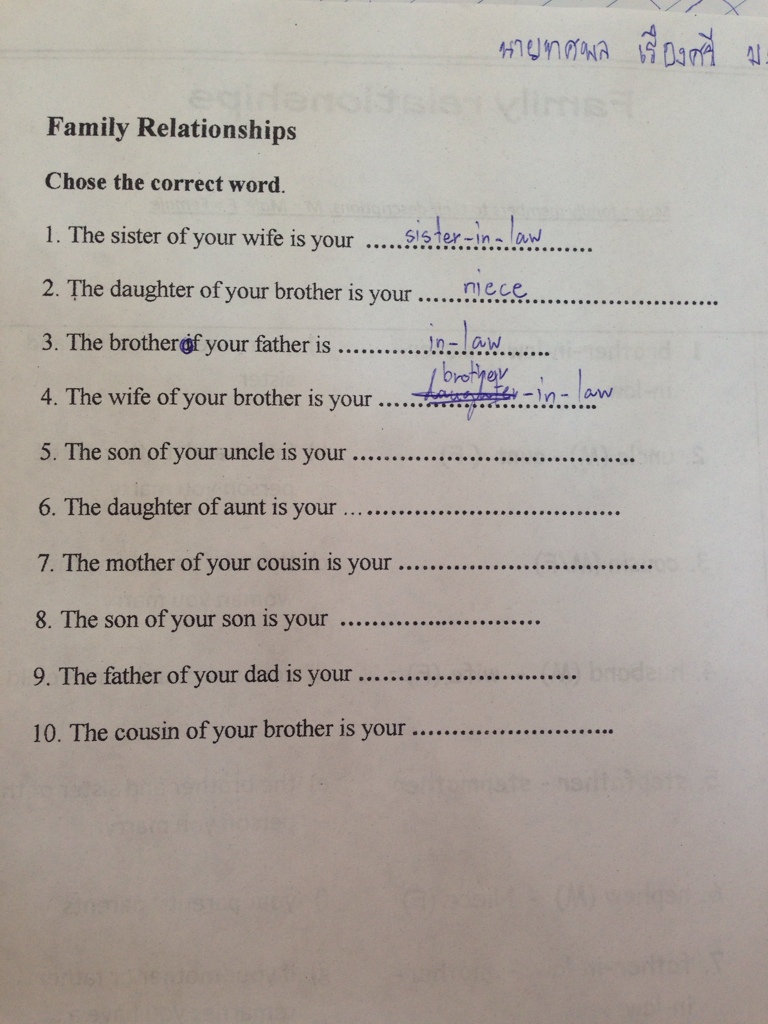 นายทศพล เรืองศรี ม.
Family Relationships
Chose the correct word.
1. The sister of your wife is your .....sister-in-law.....
2. The daughter of your brother is your .....niece.....
3. The brother of your father is .....in-law.....
brother
4. The wife of your brother is your .....daughter-in-law.....
5. The son of your uncle is your ..........
6. The daughter of aunt is your ..........
7. The mother of your cousin is your ..........
8. The son of your son is your ..........
9. The father of your dad is your ..........
10. The cousin of your brother is your ..........